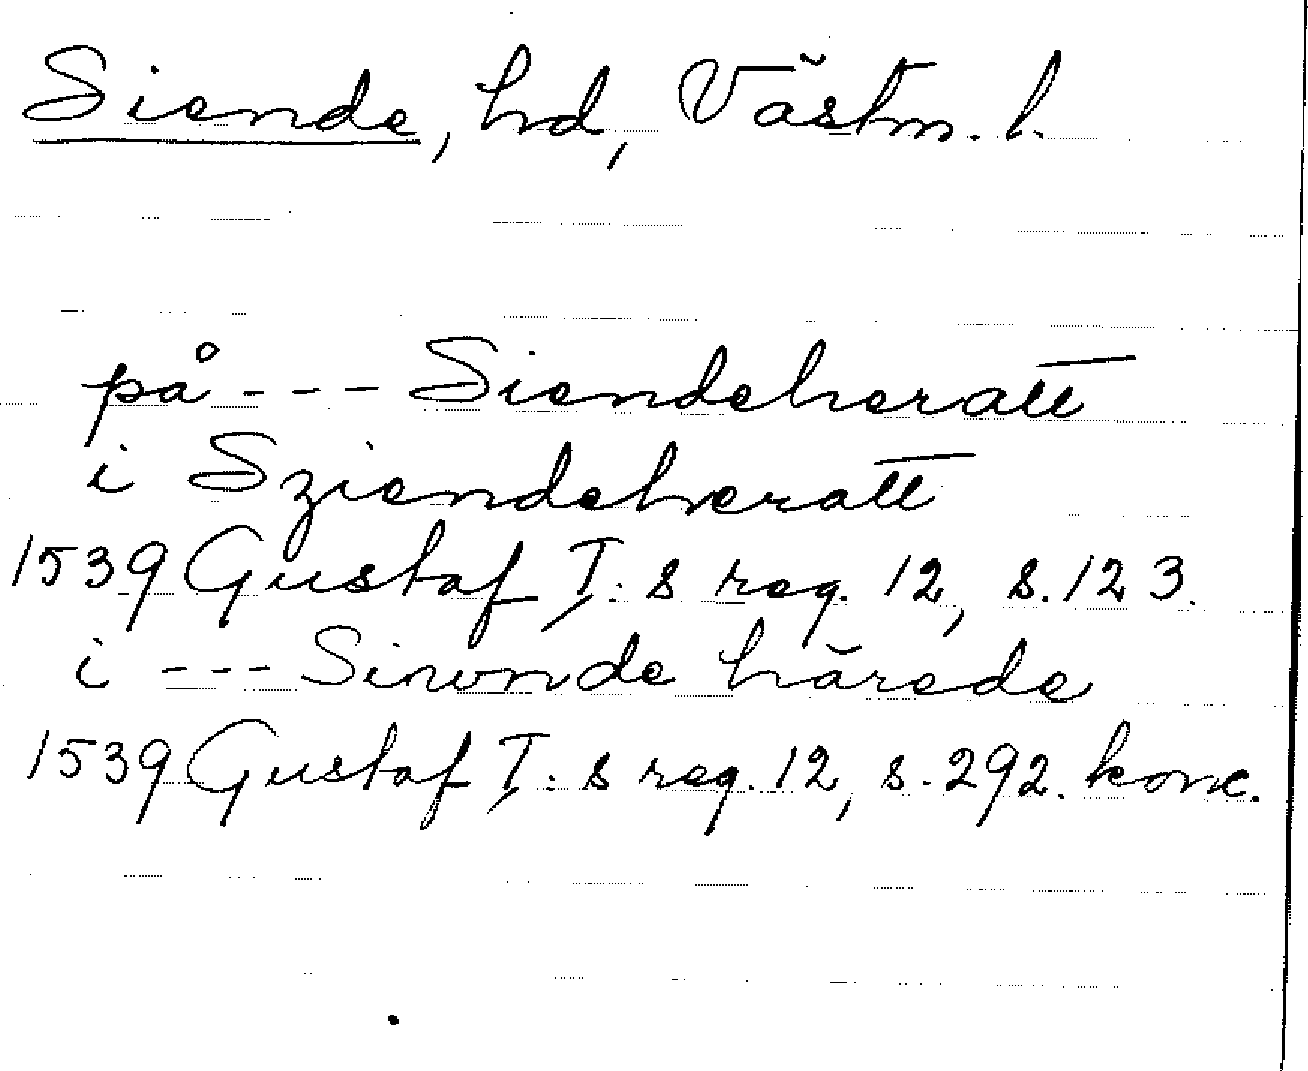 Siende, hd, Västm. l.
på --- Siendeheratt
i Sziendeheratt
1539 Gustaf I:s reg. 12, s. 123.
i --- Siwnde härede
1539 Gustaf I:s reg. 12, s. 292. konc.